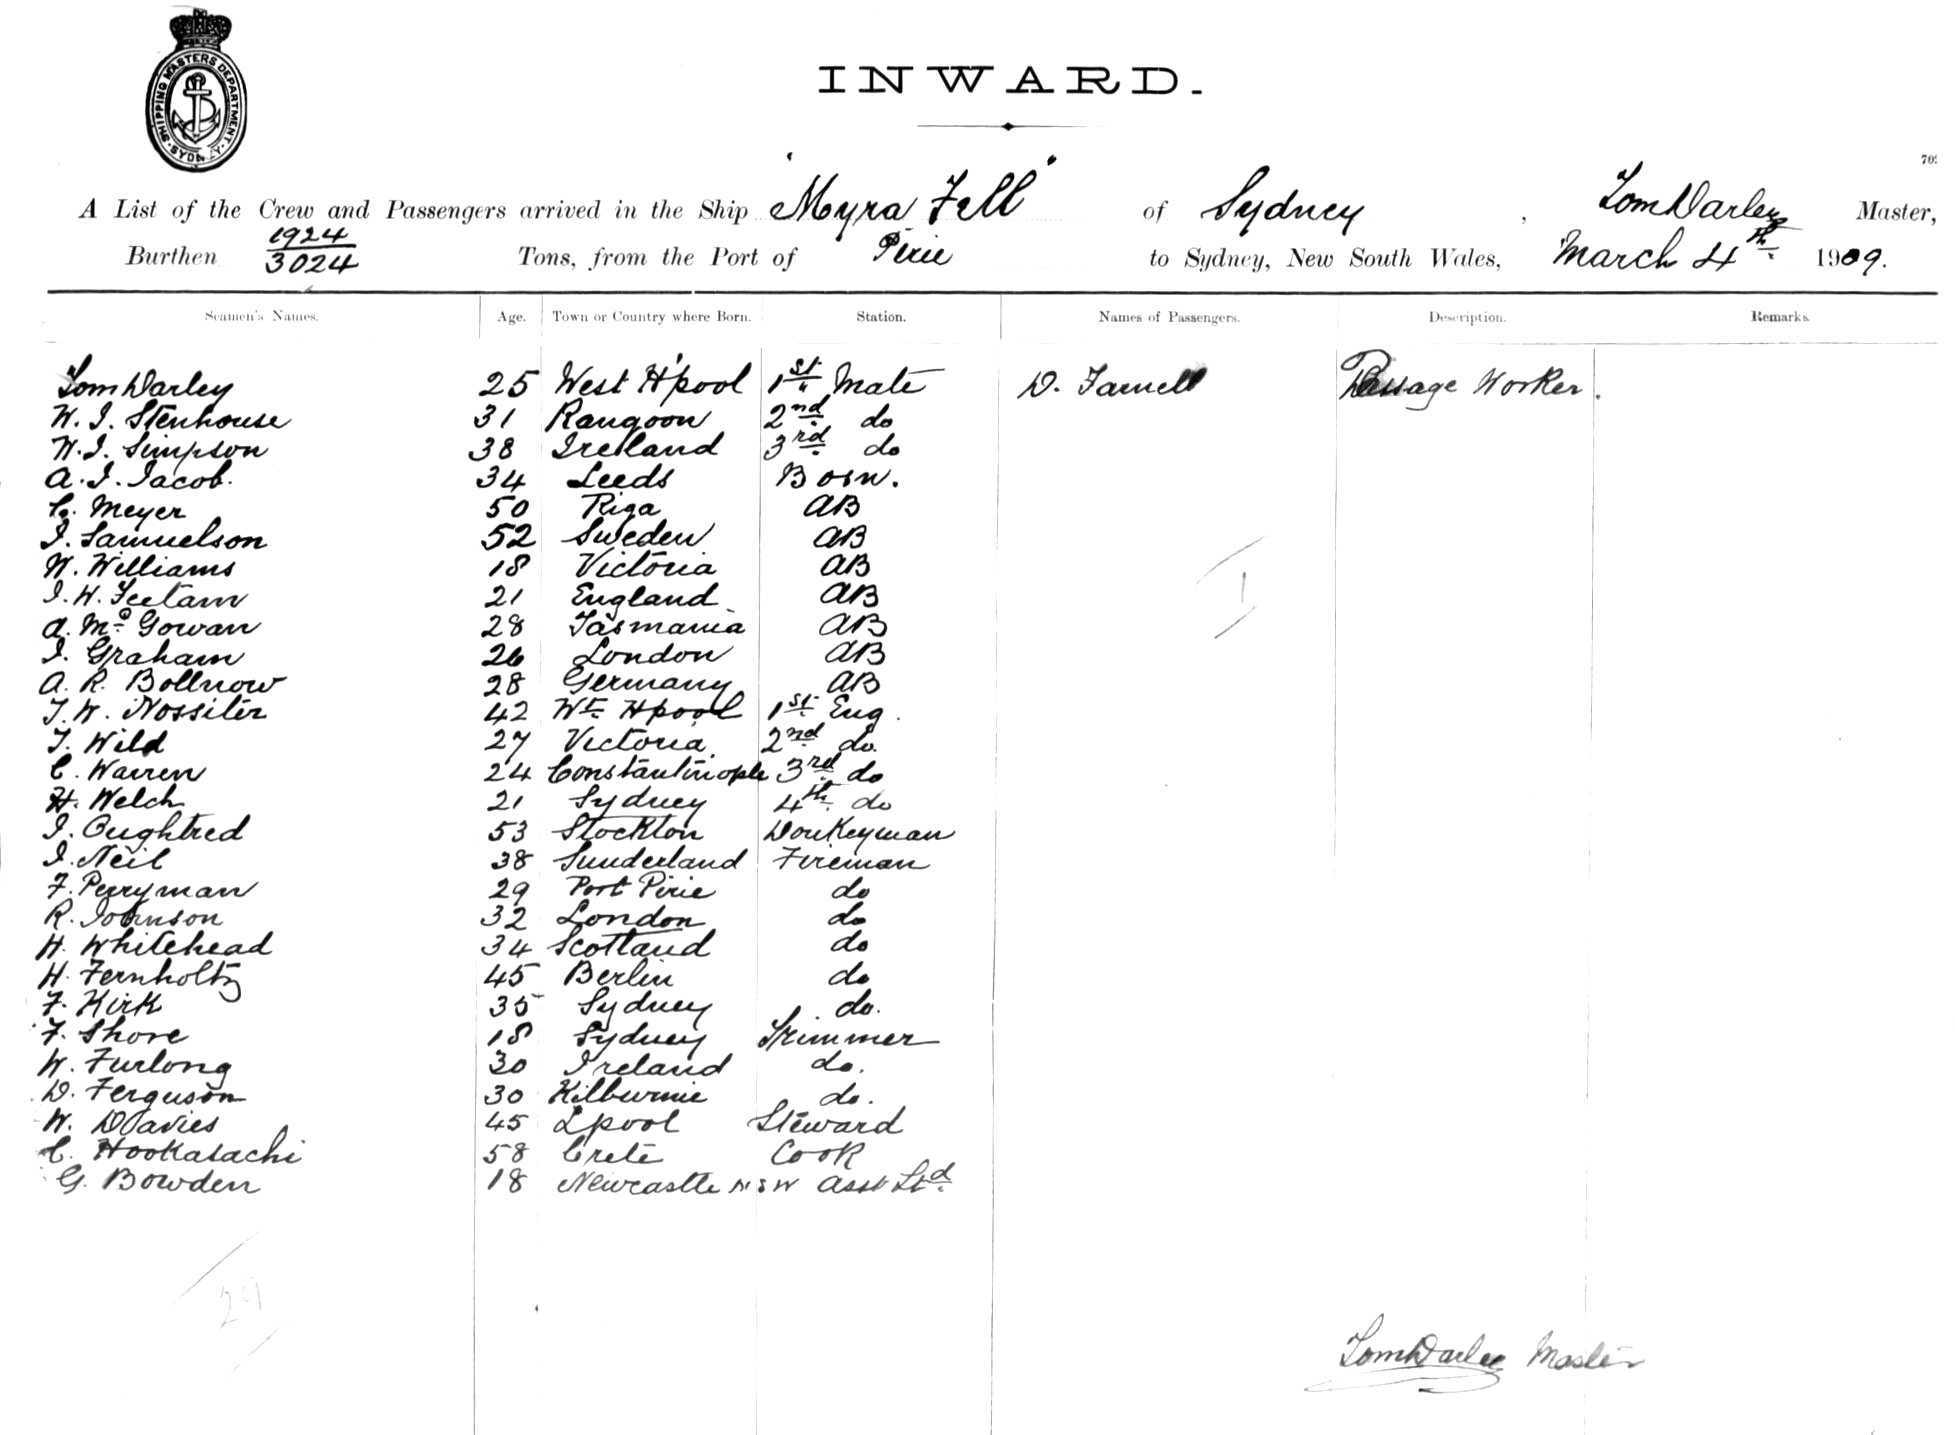 SHIPPING MASTERS DEPARTMENT. SYDNEY
INWARD.
A List of the Crew and Passengers arrived in the Ship "Myra Fell" of Sydney, Tom Darley Master,
Burthen 1924/3024 Tons, from the Port of Pirie to Sydney, New South Wales, March 4th 1909.
Seamen's Names. Age. Town or Country where Born. Station. Names of Passengers. Description. Remarks.
Tom Darley 25 West H'pool 1st Mate D. Farnell Passage Worker.
W. J. Stenhouse 31 Rangoon 2nd do
W. J. Simpson 38 Ireland 3rd do
A. J. Jacob. 34 Leeds Bosn.
C. Meyer 50 Riga AB
J. Samuelson 52 Sweden AB
W. Williams 18 Victoria AB
J. W. Feetam 21 England AB
A. McGowan 28 Tasmania AB
J. Graham 26 London AB
A. R. Bollnow 28 Germany AB
T. W. Nossiter 42 Wt. Hpool 1st Eng.
T. Wild 27 Victoria 2nd do.
C. Warren 24 Constantinople 3rd do
H. Welch 21 Sydney 4th do
J. Oughtred 53 Stockton Donkeyman
J. Neil 38 Sunderland Fireman
F. Perryman 29 Port Pirie do
R. Johnson 32 London do
H. Whitehead 34 Scotland do
H. Fernholtz 45 Berlin do
F. Kirk 35 Sydney do.
F. Shore 18 Sydney Trimmer
W. Furlong 30 Ireland do.
D. Ferguson 30 Kilburnie do.
W. Davies 45 Lpool Steward
C. Hookatachi 58 Crete Cook
G. Bowden 18 Newcastle NSW Asst Std
1
Tom Darley Master